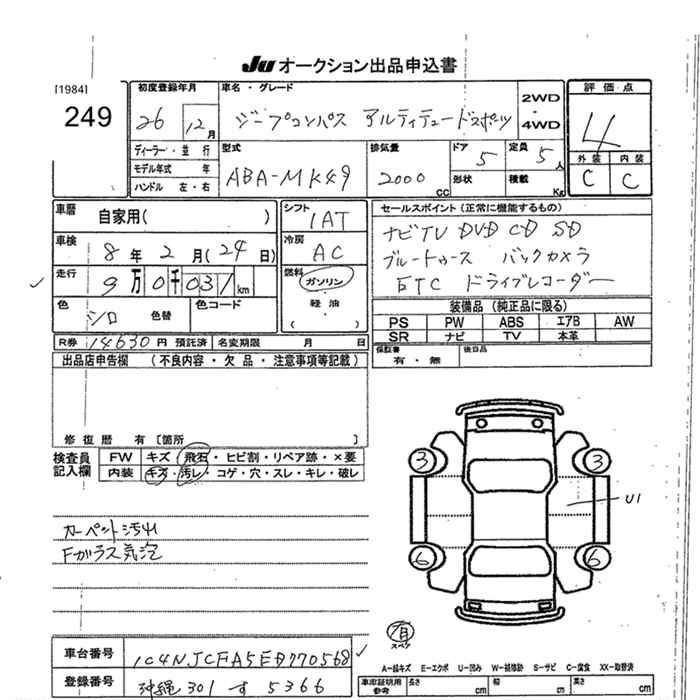 JU オークション出品申込書
[1984]
249
初度登録年月
26 12月
車名・グレード
ジープコンパス アルティテュードスポーツ
2WD
・
4WD
評価点
4
ディーラー・並行
モデル年式 年
ハンドル 左・右
型式
ABA-MK49
排気量
2000 cc
ドア
5
形状
定員
5人
積載 Kg
外装 内装
C C
車歴 自家用( )
シフト
1AT
車検 8年 2月(24日)
冷房
AC
走行 9万0千031km
燃料
ガソリン
・
軽油
・
( )
色 シロ 色替
色コード
R券 14630円 預託済 名変期限 月 日
セールスポイント (正常に機能するもの)
ナビTV DVD CD SD
ブルートゥース バックカメラ
ETC ドライブレコーダー
装備品 (純正品に限る)
PS PW ABS エアB AW
SR ナビ TV 本革
保証書
有・無
後日品
出品店申告欄 (不良内容・欠品・注意事項等記載)
修復歴 有 [箇所 ]
検査員
記入欄
FW キズ・飛石・ヒビ割・リペア跡・×要
内装 キズ・汚レ・コゲ・穴・スレ・キレ・破レ
カーペット汚れ
Fガラス気泡
3 3
U1
6 6
スペア
A-線キズ E-エクボ U-凹み W-補修跡 S-サビ C-腐食 XX-取替済
車台番号 1C4NJCFA5ED770568
登録番号 沖縄 301 す 5366
車庫証明用
参考
長さ cm
幅 cm
高さ cm